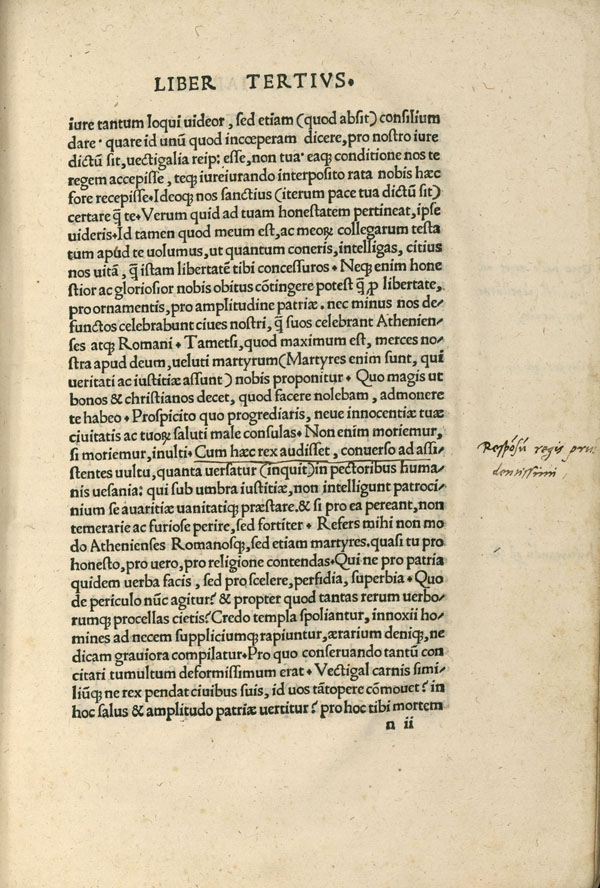 LIBER TERTIVS.
iure tantum loqui uideor, sed etiam (quod absit) consilium
dare· quare id unū quod incœperam dicere, pro nostro iure
dictū sit, uectigalia reip: esse, non tua· eaq; conditione nos te
regem accepisse, teq; iureiurando interposito rata nobis hæc
fore recepisse. Ideoq; nos sanctius (iterum pace tua dictū sit)
certare q̄ te. Verum quid ad tuam honestatem pertineat, ipse
uideris. Id tamen quod meum est, ac meoꝝ collegarum testa
tum apud te uolumus, ut quantum coneris, intelligas, citius
nos uitā, q̄ istam libertatē tibi concessuros. Neq; enim hone
stior ac gloriosior nobis obitus cōtingere potest q̄ ꝓ libertate,
pro ornamentis, pro amplitudine patriæ. nec minus nos de-
functos celebrabunt ciues nostri, q̄ suos celebrant Athenien-
ses atq; Romani. Tametsi, quod maximum est, merces no
stra apud deum, ueluti martyrum (Martyres enim sunt, qui
ueritati ac iustitiæ assunt) nobis proponitur. Quo magis ut
bonos & christianos decet, quod facere nolebam, admonere
te habeo. Prospicito quo progrediaris, neue innocentiæ tuæ
ciuitatis ac tuoꝝ saluti male consulas. Non enim moriemur,
si moriemur, inulti. Cum hæc rex audisset, conuerso ad assi-
stentes uultu, quanta uersatur (inquit) in pectoribus huma-
nis uesania: qui sub umbra iustitiæ, non intelligunt patroci-
nium se auaritiæ uanitatiq; præstare. & si pro ea pereant, non
temerarie ac furiose perire, sed fortiter. Refers mihi non mo
do Athenienses Romanosq;, sed etiam martyres. quasi tu pro
honesto, pro uero, pro religione contendas. Qui ne pro patria
quidem uerba facis, sed pro scelere, perfidia, superbia. Quo
de periculo nūc agitur? & propter quod tantas rerum uerbo-
rumq; procellas cietis? Credo templa spoliantur, innoxii ho-
mines ad necem suppliciumq; rapiuntur, ærarium deniq;, ne
dicam grauiora compilatur. Pro quo conseruando tantū con
citari tumultum deformissimum erat. Vectigal carnis simi-
liūq; ne rex pendat ciuibus suis, id uos tātopere cōmouet? in
hoc salus & amplitudo patriæ uertitur? pro hoc tibi mortem
n ii
Respōsū regis pru
dentissimi